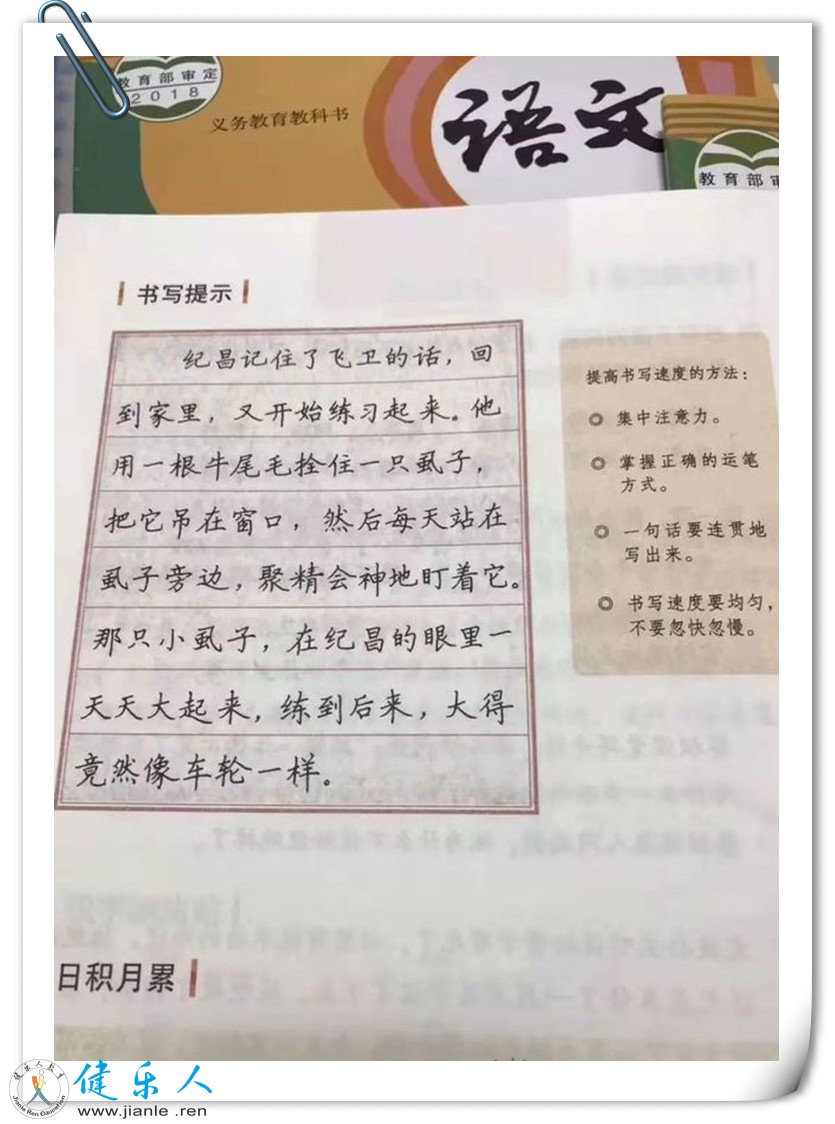 教育部审定
2018
义务教育教科书
语文
教育部审
书写提示
纪昌记住了飞卫的话，回
到家里，又开始练习起来。他
用一根牛尾毛拴住一只虱子，
把它吊在窗口，然后每天站在
虱子旁边，聚精会神地盯着它。
那只小虱子，在纪昌的眼里一
天天大起来，练到后来，大得
竟然像车轮一样。
提高书写速度的方法：
◎ 集中注意力。
◎ 掌握正确的运笔
方式。
◎ 一句话要连贯地
写出来。
◎ 书写速度要均匀，
不要忽快忽慢。
日积月累
健乐人教育
Jianle Ren Education
健乐人
www.jianle .ren